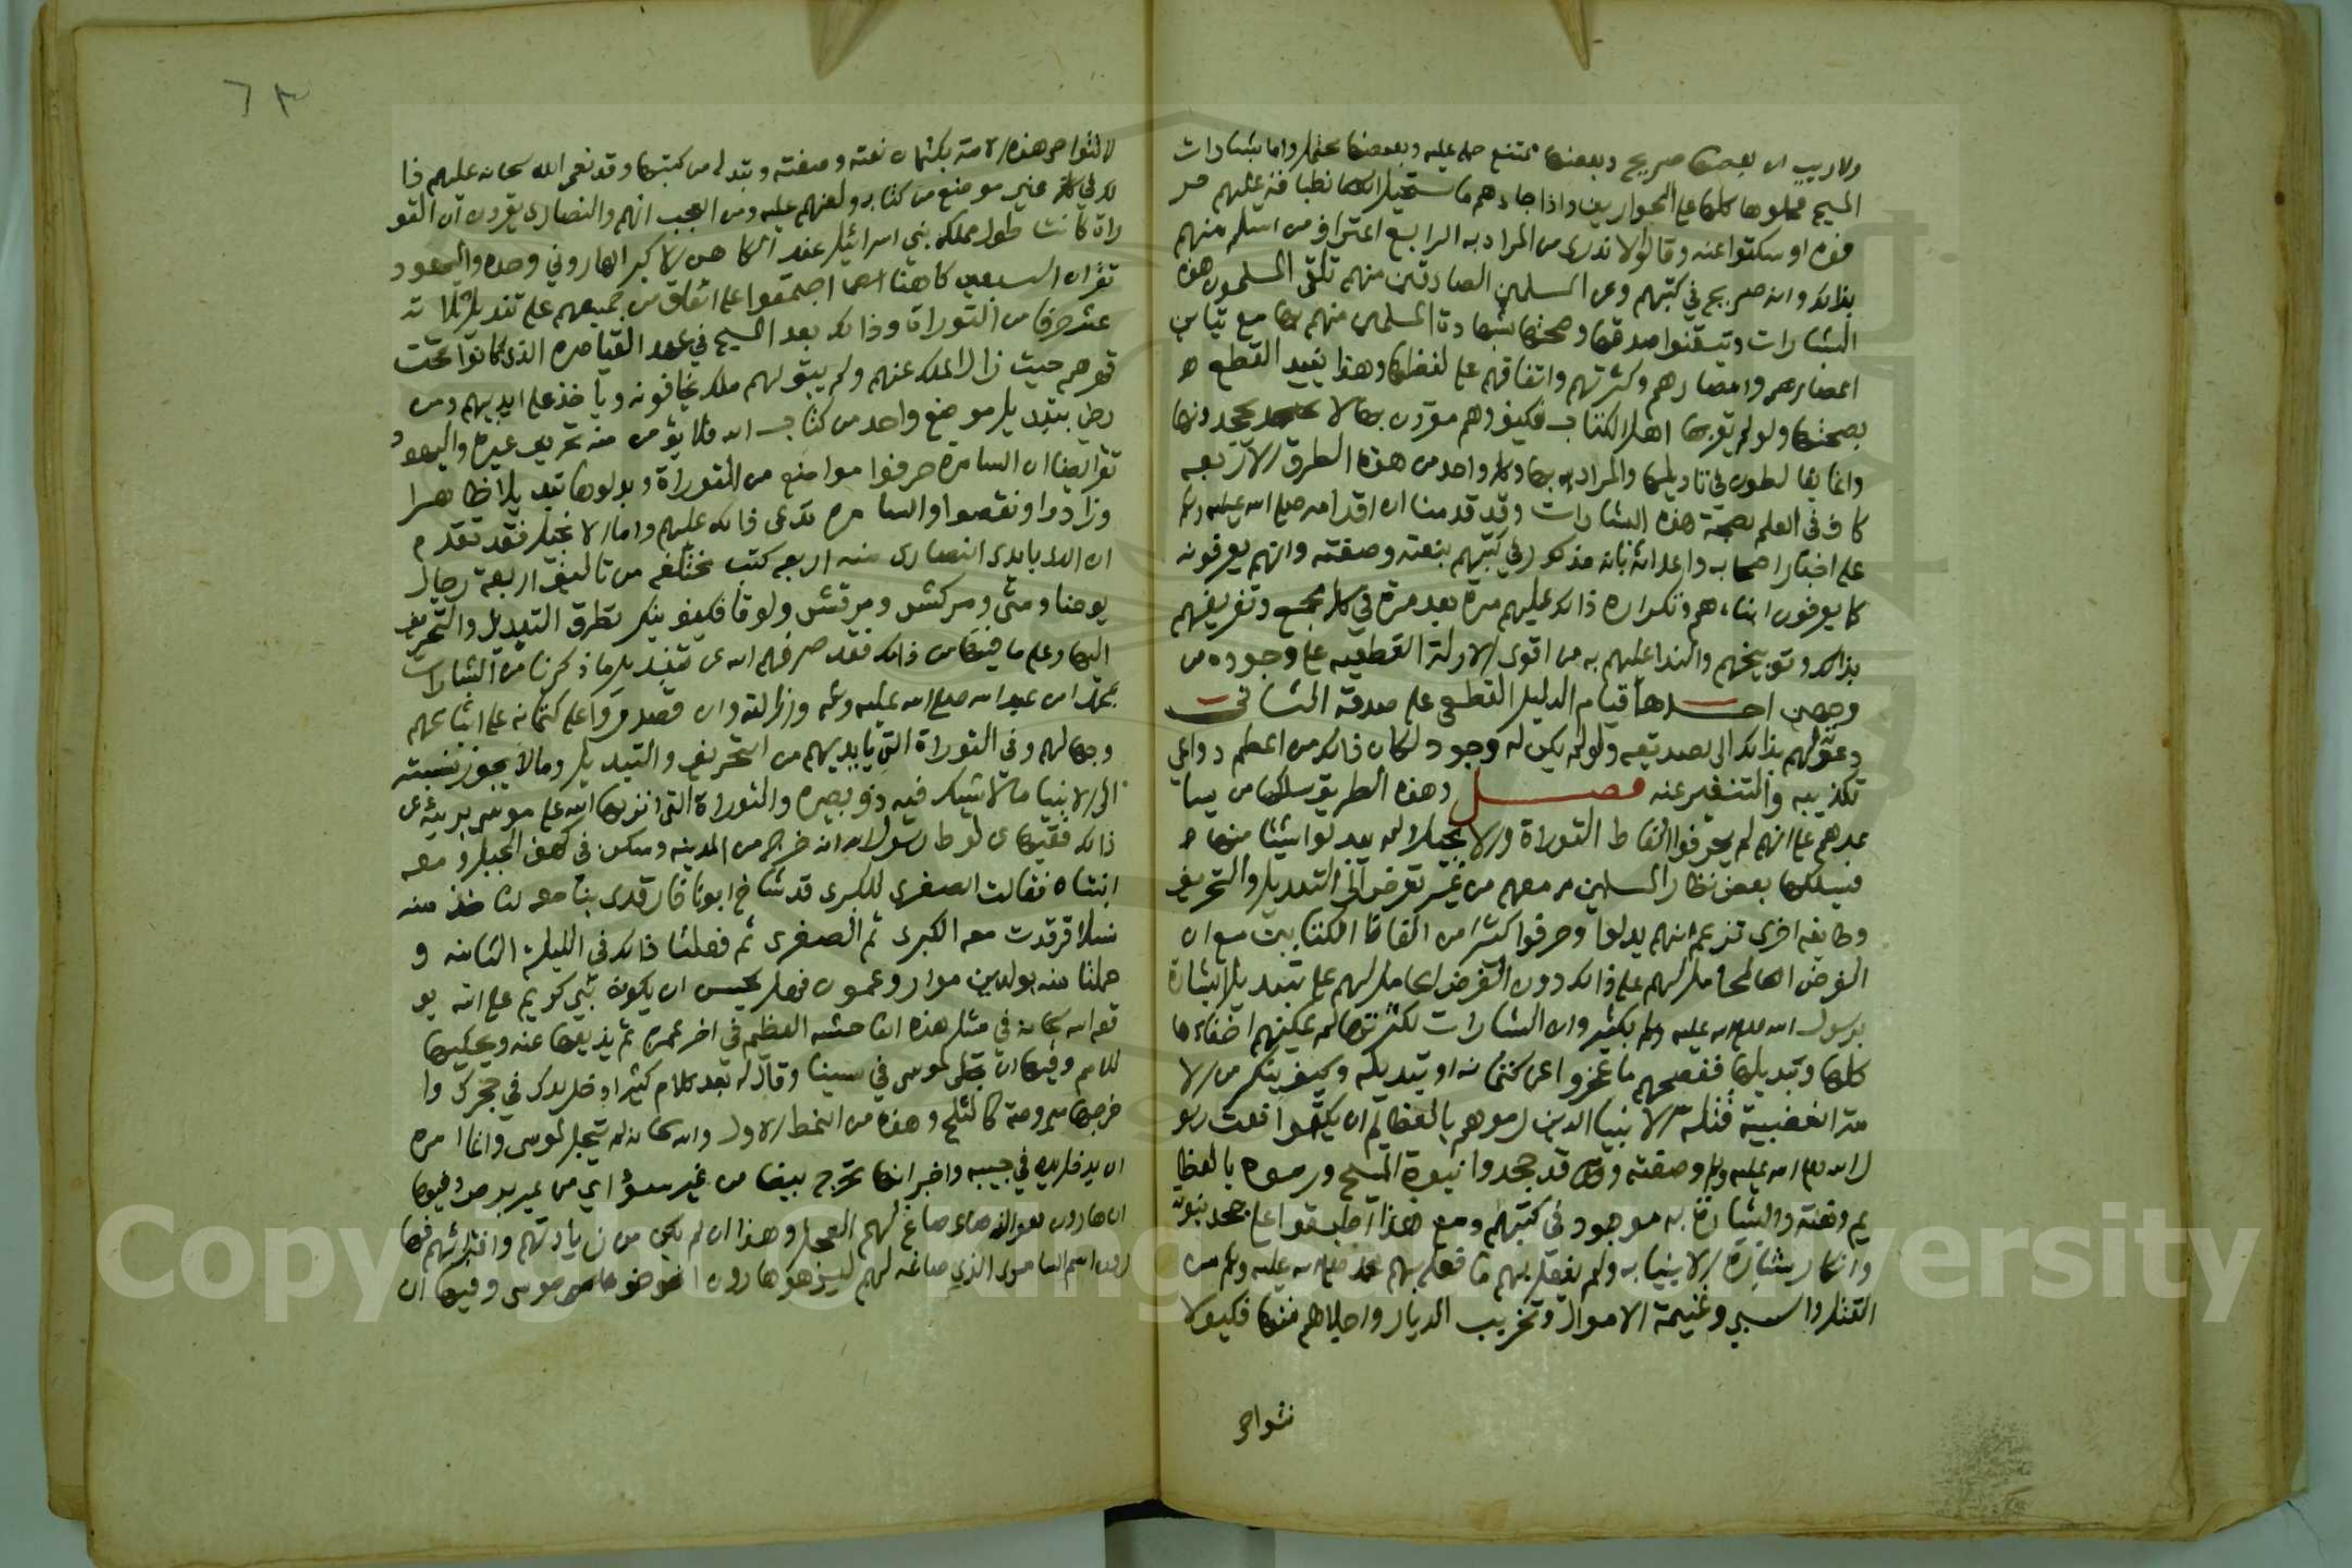 ولا ريب ان بعضها صريح وبعضها ممتنع حمله عليه وبعضها محتمل واما بشارات
المسيح فحملوها كلها على الحواريين واذا جاءهم ما يستحيل انطباقه عليهم حر
فوه او سكتوا عنه وقالوا لا ندري من المراد به الرابع اعتراف من اسلم منهم
بذلك وانه صريح في كتبهم وعن المسلمين الصادقين منهم تلقى المسلمون هذه
البشارات وتيقنوا صدقها وصحتها بشهادة المسلمين منهم بها مع تباين
اعصارهم وامصارهم وكثرتهم واتفاقهم على لفظها وهذا يفيد القطع
بصحتها ولو لم يقر بها اهل الكتاب فكيف وهم مقرون بها لا يجحدونها
وانما يغالطون في تاويلها والمراد بها وكل واحد من هذه الطرق الاربعة
كاف في العلم بصحة هذه البشارات وقد قدمنا ان اقدامه صلى الله عليه وسلم
على اخبار اصحابه واعدائه بانه مذكور في كتبهم بنعته وصفته وانهم يعرفونه
كما يعرفون ابناءهم وتكراره ذلك عليهم مرة بعد مرة في كل مجمع وتعريفهم
بذلك وتوبيخهم والندا عليهم به من اقوى الادلة القطعية على وجوده من
وجهين احدها قيام الدليل القطعي على صدقه الثاني
دعوتهم بذلك الى تصديقه ولو لم يكن له وجود لكان ذلك من اعظم دواعي
تكذيبه والتنفير عنه فصل وهذه الطريق سلكها من يسا
عدهم على انهم لم يحرفوا الفاظ التوراة والانجيل ولم يبدلوا شيئا منها
فسلكها بعض نظار المسلمين معهم من غير تعرض الى التبديل والتحريف
وطايفة اخرى تزعم انهم بدلوا وحرفوا كثيرا من الفاظ الكتابين مع ان
الغرض الحامل لهم على ذلك دون الغرض الحامل لهم على تبديل البشارة
برسول الله صلى الله عليه وسلم بكثير وان البشارات لكثرتها لم يمكنهم اخفاءها
كلها وتبديلها ففضحهم ما عجزوا عن كتمانه او تبديله وكيف ينكر من الا
مة الغضبية قتلة الانبيا الذين رموهم بالعظايم ان يكتموا نعت رسو
ل الله صلى الله عليه وسلم وصفته وقد جحدوا نبوة المسيح ورموه بالعظا
يم ونعته والبشارة به موجود في كتبهم ومع هذا اطبقوا على جحد نبوته
وانكار بشارة الانبيا به ولم يفعل بهم ما فعله بهم محمد صلى الله عليه وسلم من
القتل والسبي وغنيمة الاموال وتخريب الديار واجلاهم منها فكيف لا
تتواص
لا تتواص هذه الامة بكتمان نعته وصفته وتبدله من كتبها وقد نعى الله سبحانه عليهم ذا
لك في غير موضع من كتابه ولعنهم عليه ومن العجب انهم والنصارى يقرون ان التو
راة كانت طول مملكة بني اسرائيل عند الكاهن الاكبر الهاروني وحده واليهود
تقر ان السبعين كاهنا اجتمعوا على اتفاق من جميعهم على تبديل ثلاثة
عشر حرفا من التوراة وذلك بعد المسيح في عهد القياصرة الذي كانوا تحت
قهرهم حيث زال الملك عنهم ولم يبق لهم ملك يخافونه وياخذ على ايديهم ومن
رضي بتبديل موضع واحد من كتاب الله فلا يؤمن منه تحريف غيره واليهود
تقر ايضا ان السامرة حرفوا مواضع من التوراة وبدلوها تبديلا ظاهرا
وزادوا ونقصوا والسامرة تدعي ذلك عليهم واما الانجيل فقد تقدم
ان الذي بايدي النصارى منه اربعة كتب مختلفة من تاليف اربعة رجال
يوحنا ومتى ومركش ومرقش ولوقا فكيف ينكر تطرق التبديل والتحريف
اليها وعلى ما فيها من ذلك فقد صرفهم الله عن تبديل ما ذكرنا من البشارات
بمحمد ابن عبد الله صلى الله عليه وسلم وازالته وان قصد وقدروا على كتمانه على اتباعهم
وجهالهم وفي التوراة التي بايديهم من التحريف والتبديل وما لا يجوز نسبته
الى الانبيا ما لا يشك فيه ذو بصيرة والتوراة التي انزلها الله على موسى بريئة من
ذلك ففيها عن لوط رسول الله انه خرج من المدينة وسكن في كهف الجبل ومعه
ابنتاه فقالت الصغرى للكبرى قد شاخ ابونا فارقدي بنا معه لناخذ منه
نسلا فرقدت معه الكبرى ثم الصغرى ثم فعلتا ذلك في الليلة الثانية و
حملتا منه بولدين مواب وعمون فهل يحسن ان يكون نبي كريم على الله يو
قعه الله سبحانه في مثل هذه الفاحشة العظمى في اخر عمره ثم يذيعها عنه ويحكيها
للامم وفيها ان تجلى لموسى في سينا وقال له بعد كلام كثير ادخل يدك في حجرك وا
خرجها مبروصة كالثلج وهذه من النمط الاول والله سبحانه لم يتجل لموسى وانما امره
ان يدخل يده في جيبه واخبر انها تخرج بيضا من غير سوء اي من غير برص وفيها
ان هارون هو الذي صاغ لهم العجل وهذا ان لم يكن من زيادتهم وافترائهم فها
رون اسم السامري الذي صاغه لهم ليس هو هارون اخو موسى وفيها ان